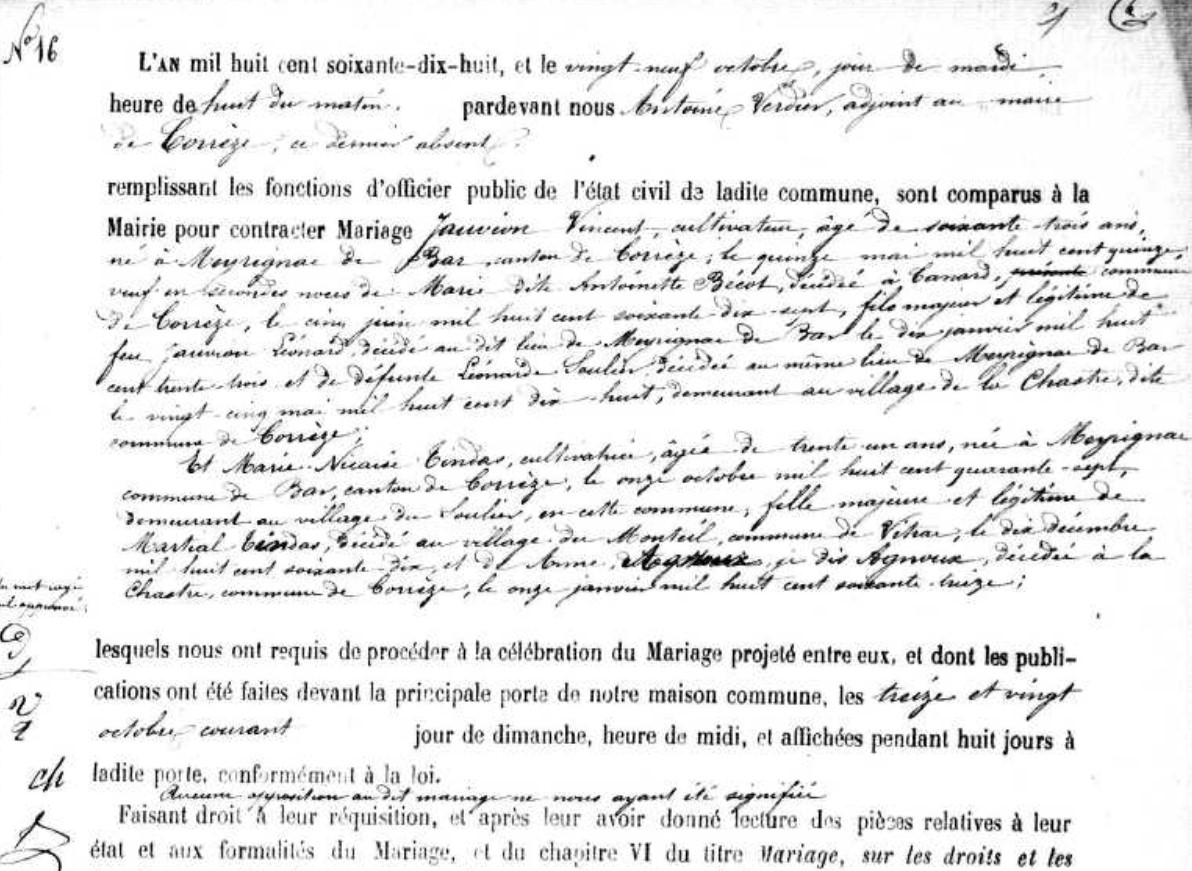 N° 16
L'AN mil huit cent soixante-dix-huit, et le vingt-neuf octobre, jour de mardi
heure de huit du matin. pardevant nous Antoine Verdier, adjoint au maire
de Corrèze, ce dernier absent.
remplissant les fonctions d'officier public de l'état civil de ladite commune, sont comparus à la
Mairie pour contracter Mariage Jauvion Vincent, cultivateur, âgé de soixante-trois ans,
né à Meyrignac de Bar, canton de Corrèze, le quinze mai mil huit cent quinze,
veuf en secondes noces de Marie dite Antoinette Bécot, décédée à Tanard, commune
de Corrèze, le cinq juin mil huit cent soixante dix-sept, fils majeur et légitime de
feu Jauvion Léonard, décédé au dit lieu de Meyrignac de Bar le dix janvier mil huit
cent trente-trois et de défunte Léonarde Soulier décédée au même lieu de Meyrignac de Bar
le vingt-cinq mai mil huit cent dix-huit, demeurant au village de la Chastre, dite
commune de Corrèze;
Et Marie-Nicaise Tindas, cultivatrice, âgée de trente-un ans, née à Meyrignac
commune de Bar, canton de Corrèze, le onze octobre mil huit cent quarante-sept,
demeurant au village du Soulier, en cette commune, fille majeure et légitime de
Martial Tindas, décédé au village du Monteil, commune de Vitrac, le dix décembre
mil huit cent soixante-dix, et de Anne Agnoux, je dis Agnoux, décédée à la
Chastre, commune de Corrèze, le onze janvier mil huit cent soixante treize;
un mot rayé
nul approuvé
lesquels nous ont requis de procéder à la célébration du Mariage projeté entre eux, et dont les publi-
cations ont été faites devant la principale porte de notre maison commune, les treize et vingt
octobre courant jour de dimanche, heure de midi, et affichées pendant huit jours à
ladite porte, conformément à la loi.
Aucune opposition au dit mariage ne nous ayant été signifiée
Faisant droit à leur réquisition, et après leur avoir donné lecture des pièces relatives à leur
état et aux formalités du Mariage, et du chapitre VI du titre Mariage, sur les droits et les